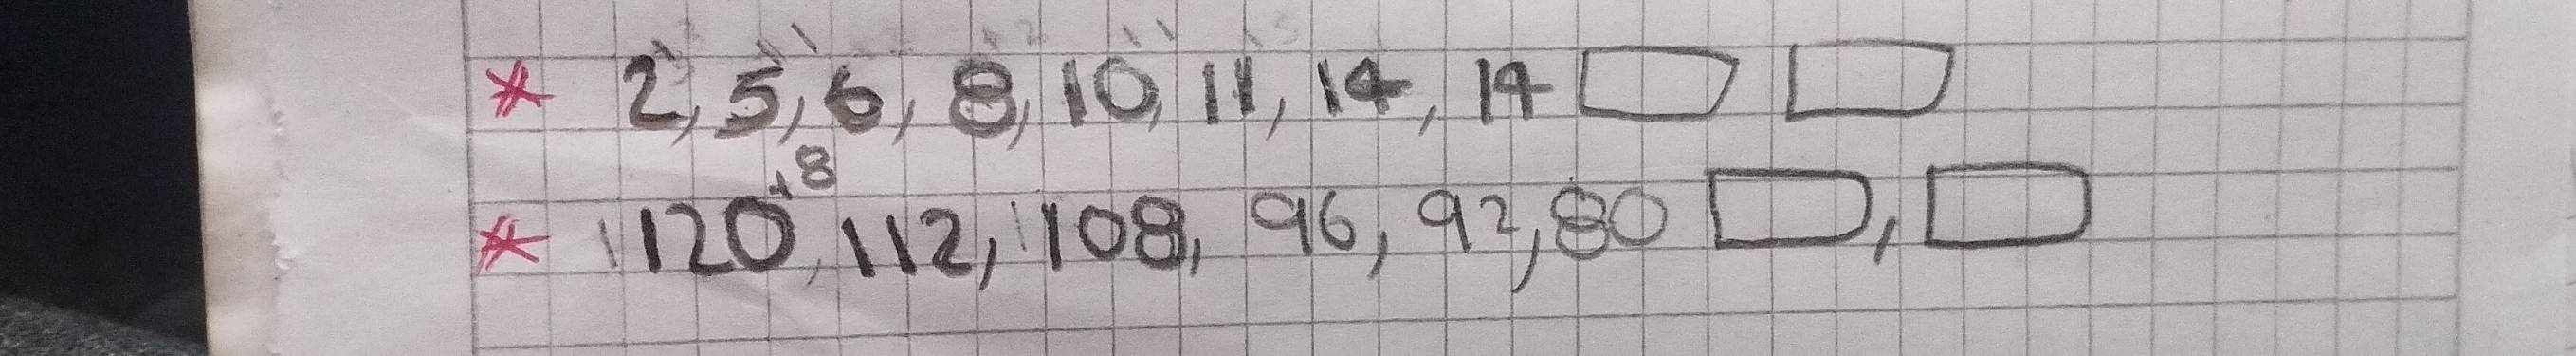 * 2, 5, 6, 8, 10, 11, 14, 14
+8
* 120, 112, 108, 96, 92, 80 ,